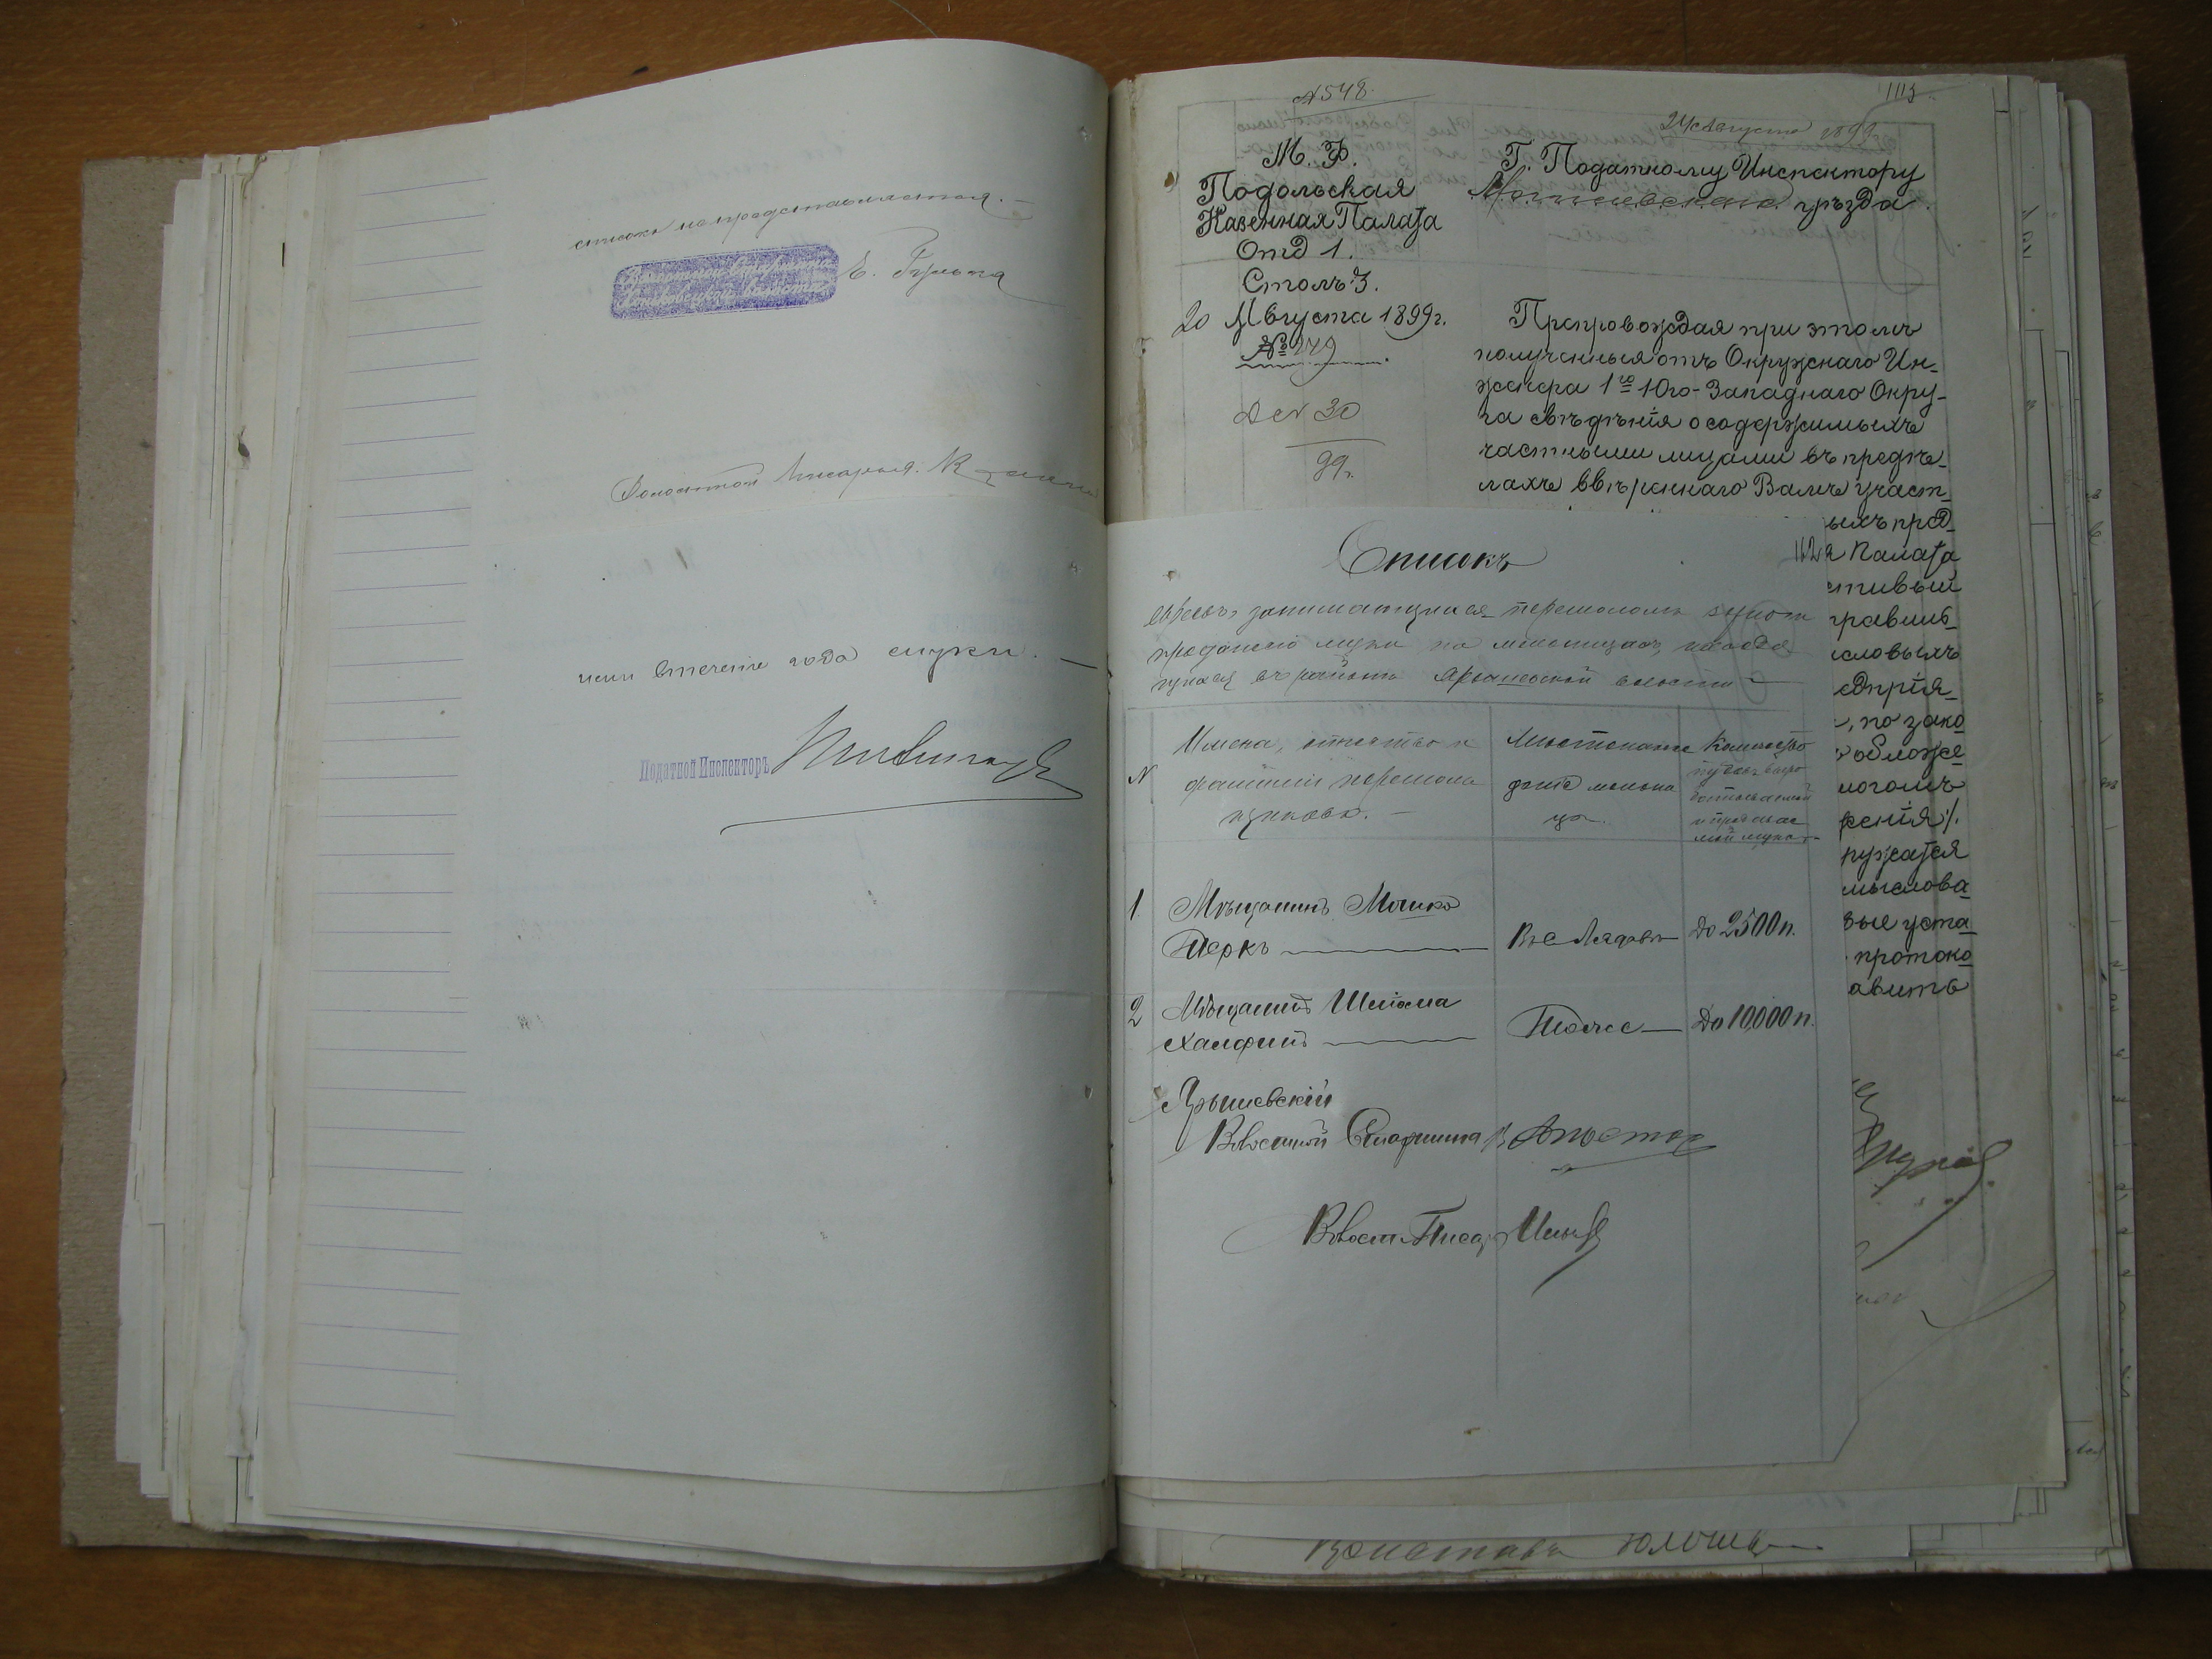 списокъ не представляется. —
Волостной Старшина
волости
Е. Гулька
Волостной Писарь
ими втеченіе года муки. —
Податной Инспекторъ
№ 548.
113
24 Августа 1899
М. Ф.
Подольская
Казенная Палата
Отд 1.
Столъ 3.
20 Августа 1899 г.
№ 279
30
99 г.
Г. Податному Инспектору
Могилевскаго уѣзда.
Препровождая при этомъ
полученныя отъ Окружнаго Ин-
женера 1го Юго-Западнаго Окру-
га свѣдѣнія о содержимыхъ
частными лицами въ предѣ-
лахъ ввѣреннаго Вамъ участ-
ыхъ пред-
Палата
стивый
правиль-
словыхъ
едприя-
, по зако
обложе
логомъ
рения).
ружатся
мыслова
вые уста
протоко
авить
112
Списокъ
евреевъ, занимающихся перемоломъ
продажею муки на мельницахъ, находя
щихся въ районѣ Ярышевской волости —
№
Имена, отчество и
фамиліи перемоль
щиковъ. —
Мѣстонахож
деніе мельни
цы.
Количество
пудовъ выра
батываемой
и продавае
мой муки
1
Мѣщанинъ Мошко
Теркъ
В с Лядовѣ
до 2500 п.
2
Мѣщанинъ Шлиома
Халфинъ
Тоже
До 10,000 п.
Ярышевскій
Волостной Старшина
Волост. Писарь